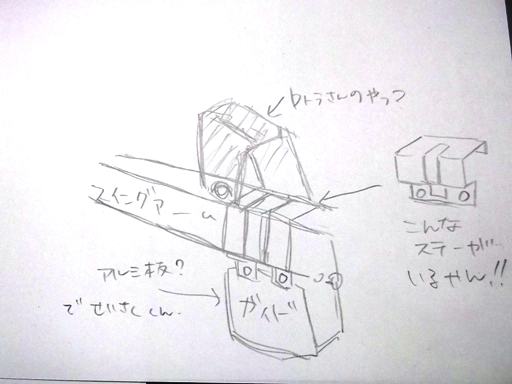 トラさんのやつ
スイングアーム
こんな
ステーが
いるやん!!
アルミ板?
でせいさくくん.
ガイド